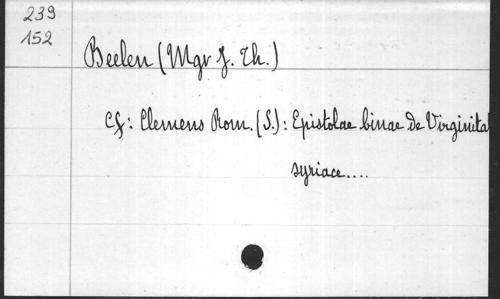 239
152
Beelen (Mgr J. Th.)
Cf: Clemens Rom. (S.): Epistolae binae de Virginita
syriace....